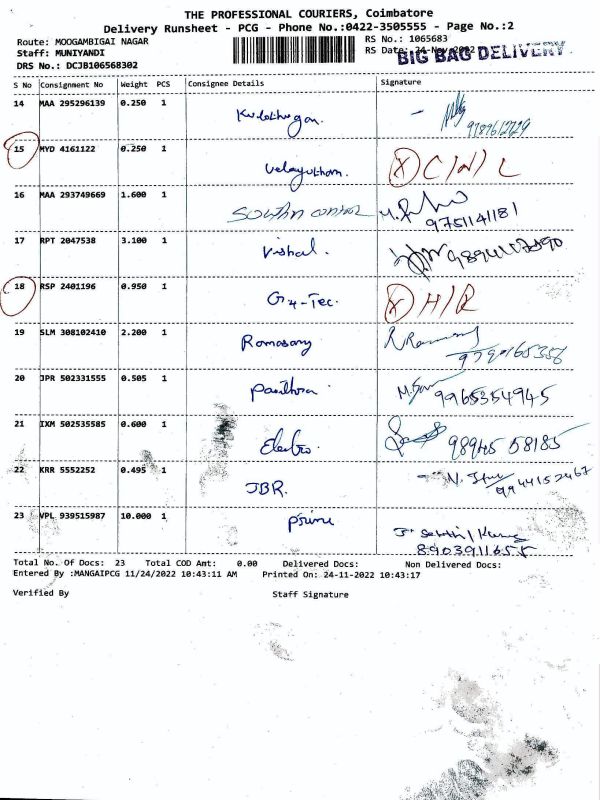 THE PROFESSIONAL COURIERS, Coimbatore
Delivery Runsheet - PCG - Phone No.:0422-3505555 - Page No.:2
Route: MOOGAMBIGAI NAGAR RS No.: 1065683
Staff: MUNIYANDI RS Date: 24-Nov-2022
BIG BAG DELIVERY
DRS No.: DCJB106568302
S No Consignment No Weight PCS Consignee Details Signature
14 MAA 295296139 0.250 1
15 MYD 4161122 0.250 1 Velayutham. X C/N/L
16 MAA 293749669 1.600 1 9751141181
17 RPT 2047538 3.100 1 Vishal.
18 RSP 2401196 0.950 1 G4-Tec. X H/R
19 SLM 308102410 2.200 1 Ramasamy 9790165356
20 JPR 502331555 0.505 1 9965354945
21 IXM 502535585 0.600 1 Electro. 98945 58185
22 KRR 5552252 0.495 1 JBR.
23 VPL 939515987 10.000 1 prime
8903911655
Total No. Of Docs: 23 Total COD Amt: 0.00 Delivered Docs: Non Delivered Docs:
Entered By :MANGAIPCG 11/24/2022 10:43:11 AM Printed On: 24-11-2022 10:43:17
Verified By Staff Signature